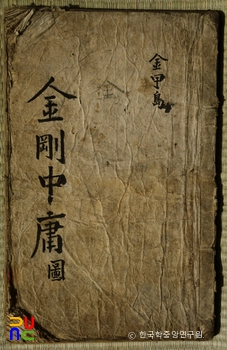 金甲島
金
金剛中庸圖
© 한국학중앙연구원